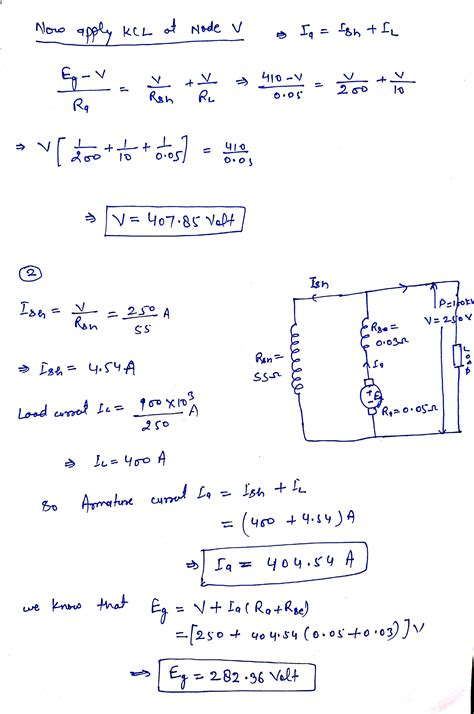 Now apply KCL at Node V ⇒ Ia = Ish + IL
(Eg - V)/Ra = V/Rsh + V/RL ⇒ (410 - V)/0.05 = V/200 + V/10
⇒ V[1/200 + 1/10 + 1/0.05] = 410/0.05
⇒ V = 407.85 Volt
②
Ish = V/Rsh = 250/55 A
⇒ Ish = 4.54 A
Load current IL = 100×10³/250 A
⇒ IL = 400 A
Ish
P=100kW
V=250V
Rse=
0.03Ω
Rsh=
55Ω
Ia
Load
Eg
Ra=0.05Ω
So Armature current Ia = Ish + IL
= (400 + 4.54) A
⇒ Ia = 404.54 A
we know that Eg = V + Ia(Ra+Rse)
= [250 + 404.54 (0.05+0.03)] V
⇒ Eg = 282.36 Volt